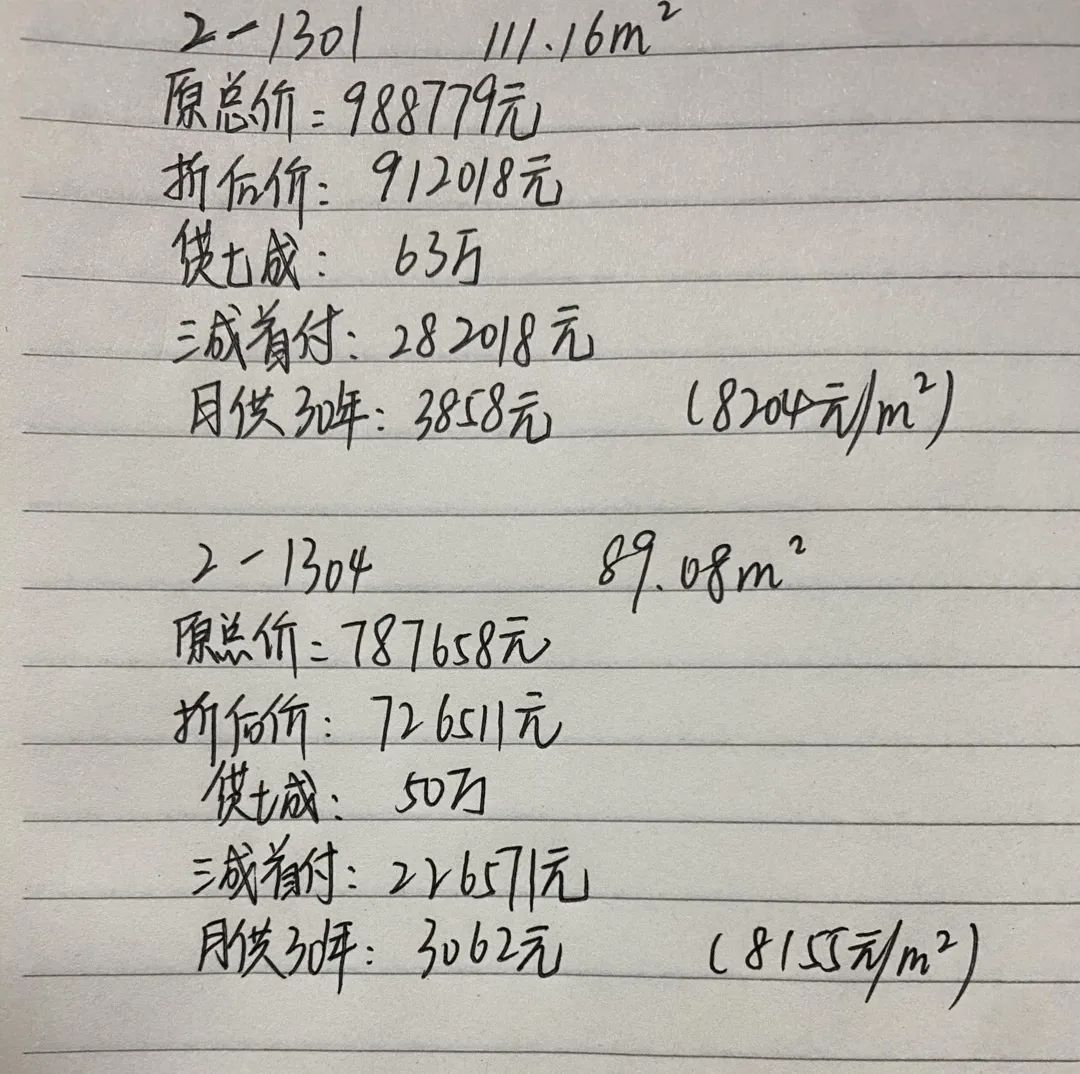 2-1301 111.16m²
原总价:988779元
折后价:912018元
供七成: 63万
三成首付:282018元
月供30年:3858元 (8204元/m²)
2-1304 89.08m²
原总价:787658元
折后价:726511元
供七成: 50万
三成首付:226571元
月供30年:3062元 (8155元/m²)